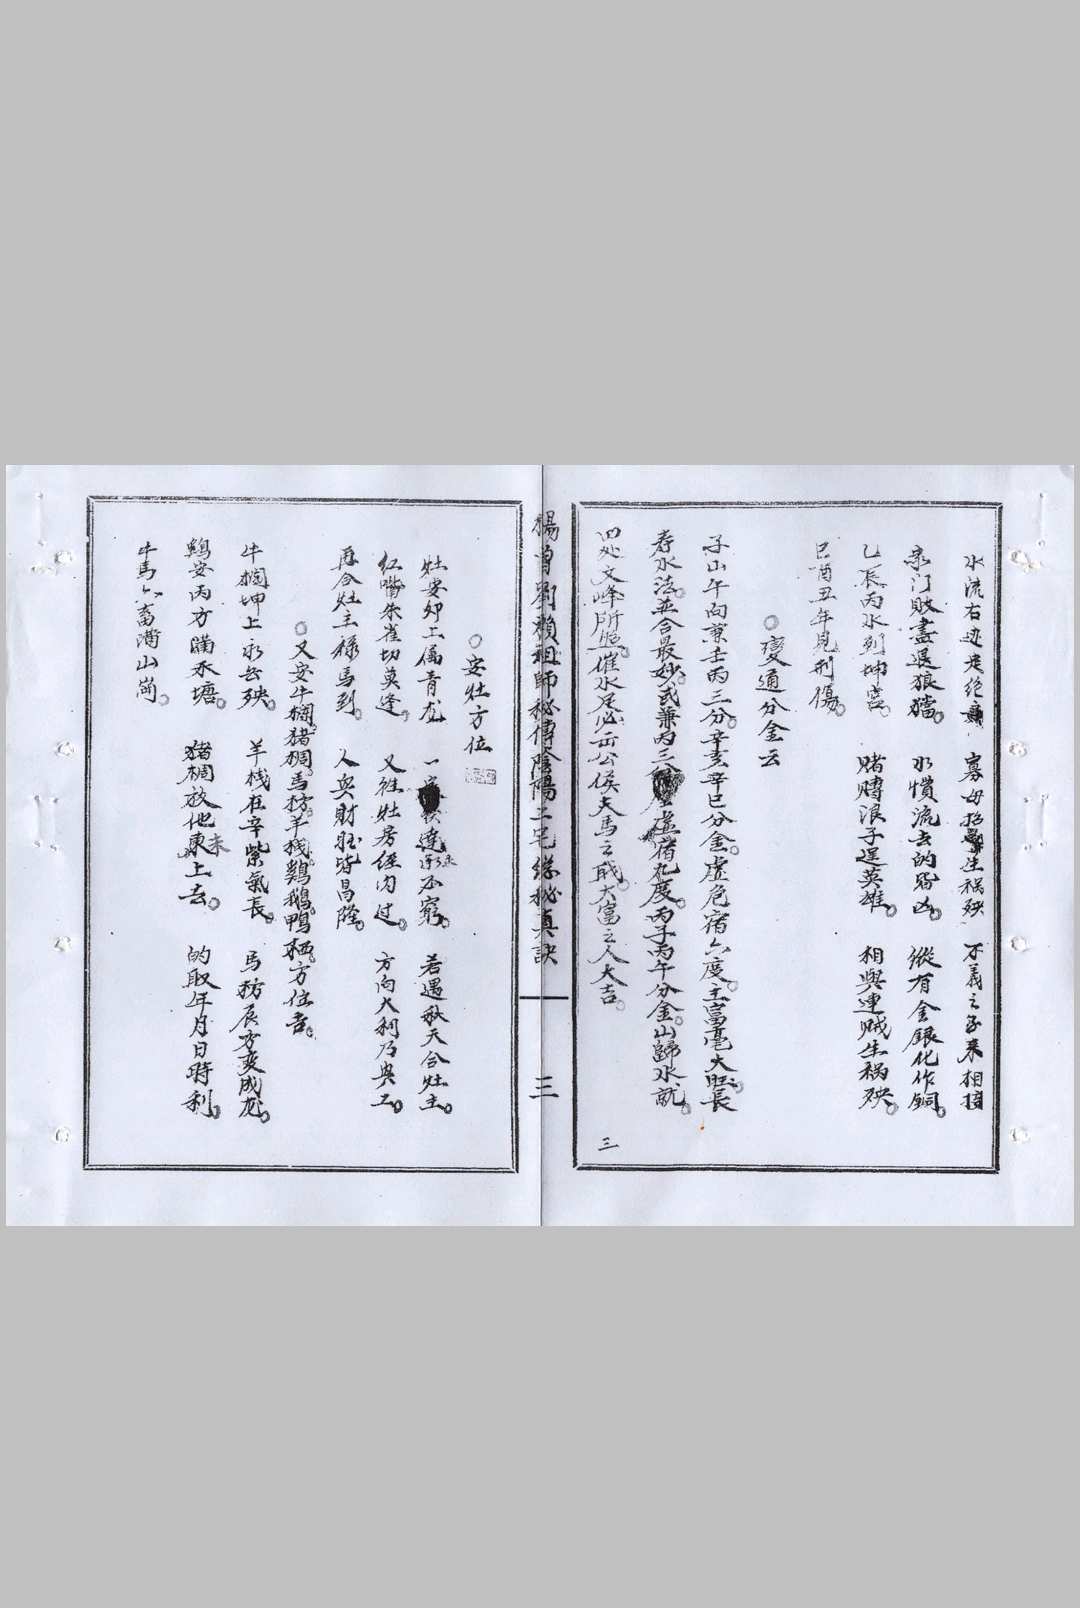 水流右边是绝 寡母招 生祸殃 不義之子来相接
家门敗盡退狼犺 水慣流去的皆凶 縱有金銀化作銅
乙辰丙水到坤宫 賭賻浪子逞英雄 相與連贼生祸殃
巳酉丑年見刑傷
變通分金云
子山午向兼壬丙三分辛亥辛巳分金虚危宿六度主富亳大旺長
寿水法並合最妙或兼丙三 虚宿九度丙子丙午分金山歸水就
四处文峰所照催水足必出公侯夫馬之職大富之人大吉
三
楊曾劉賴祖師秘傳陰陽二宅 秘真訣
三
安灶方位
灶安卯上属青龙 一家 達永不窮 若遇秋天合灶主
红嘴朱雀切莫逢 又往灶房經内过 方向大利乃與工
再合灶主禄馬到 人與財旺皆昌隆
又安牛欄猪欄馬枋羊栈鷄鵝鴨栖方位吉
牛欄坤上永無殃 羊栈在辛紫氣長 馬枋辰方变成龙
鷄安丙方滿禾塘 猪欄放他未上去 的取年月日時利
牛馬六畜满山崗